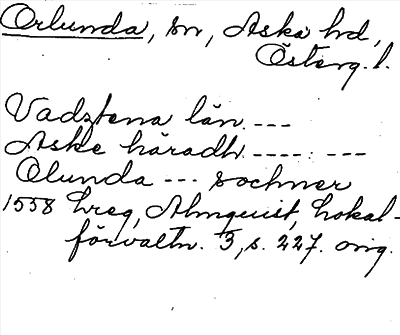 Orlunda, sn, Aska hd,
Österg. l.
Vadztena län ---
Aske häradh ----: ---
Olunda --- sochner
1558 Lreg, Almquist, Lokal-
förvaltn. 3, s. 227. orig.